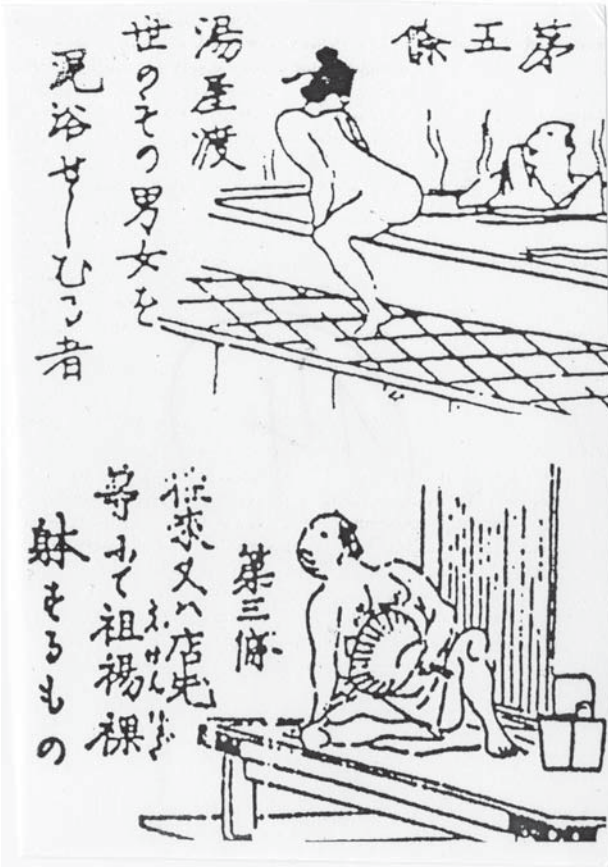 第五條
湯屋渡
世のもの男女を
混浴せしむる者
第三條
往來又ハ店先
等にて袒裼裸
躰するもの